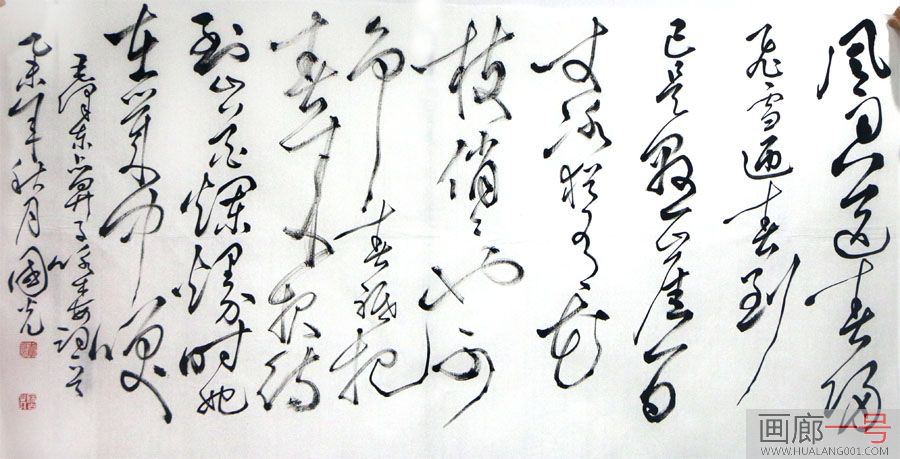 風雨送春归
飞雪迎春到
已是悬崖百
丈冰犹有花
枝俏俏也不
争春祗把
春来报待
到山花烂漫时她
在丛中笑
毛泽东卜算子咏梅词一首
乙未年秋月 國光
画廊一号
WWW.HUALANG001.COM